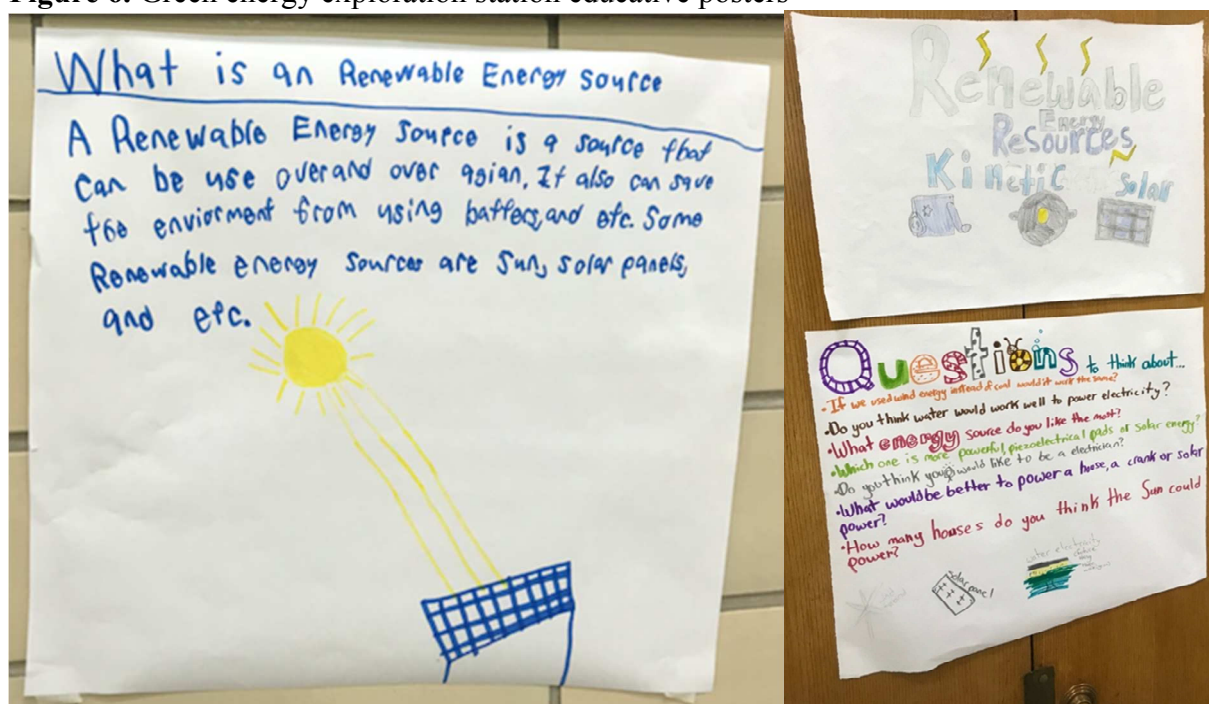 Figure 6. Green energy exploration station educative posters
What is an Renewable Energy source
A Renewable Energy Source is a source that
can be use over and over agian. It also can save
the enviorment from using batters, and etc. Some
Renewable energy sources are sun, solar panels,
and etc.
Renewable
Energy
Resources
Kinetic
Solar
Questions to think about...
•If we used wind energy instead of coal would it work the same?
•Do you think water would work well to power electricity?
•What energy source do you like the most?
•Which one is more powerful, piezoelectrical pads or solar energy?
•Do you think you would like to be a electrician?
•What would be better to power a house, a crank or solar
power?
•How many houses do you think the Sun could
power?
solar panel
water electricity